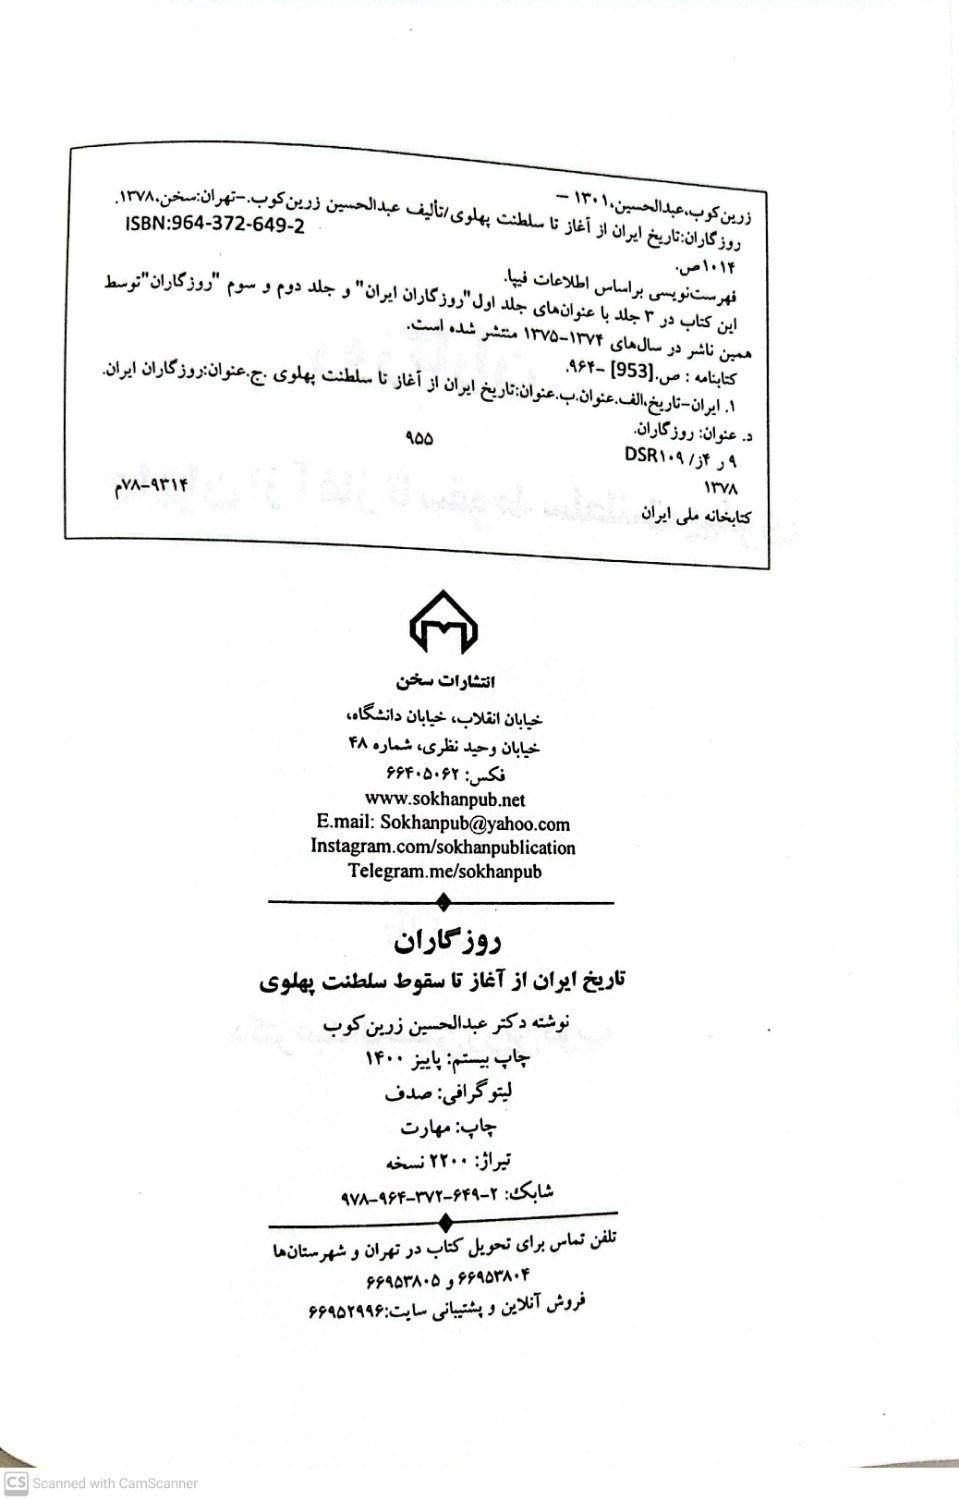 زرین‌کوب،عبدالحسین،۱۳۰۱ –
روزگاران:تاریخ ایران از آغاز تا سلطنت پهلوی/تألیف عبدالحسین زرین‌کوب.–تهران:سخن،۱۳۷۸.
۱۰۱۴ص. ISBN:964-372-649-2
فهرست‌نویسی براساس اطلاعات فیپا.
این کتاب در ۳ جلد با عنوان‌های جلد اول"روزگاران ایران" و جلد دوم و سوم "روزگاران"توسط
همین ناشر در سال‌های ۱۳۷۴–۱۳۷۵ منتشر شده است.
کتابنامه : ص.[953] –۹۶۴.
۱. ایران–تاریخ،الف.عنوان.ب.عنوان:تاریخ ایران از آغاز تا سلطنت پهلوی .ج.عنوان:روزگاران ایران.
د. عنوان: روزگاران.
۹ ر ۴ز/ DSR۱۰۹ ۹۵۵
۱۳۷۸
کتابخانه ملی ایران ۹۳۱۴–۷۸م
انتشارات سخن
خیابان انقلاب، خیابان دانشگاه،
خیابان وحید نظری، شماره ۴۸
فکس: ۶۶۴۰۵۰۶۲
www.sokhanpub.net
E.mail: Sokhanpub@yahoo.com
Instagram.com/sokhanpublication
Telegram.me/sokhanpub
روزگاران
تاریخ ایران از آغاز تا سقوط سلطنت پهلوی
نوشته دکتر عبدالحسین زرین‌کوب
چاپ بیستم: پاییز ۱۴۰۰
لیتوگرافی: صدف
چاپ: مهارت
تیراژ: ۲۲۰۰ نسخه
شابک: ۲–۶۴۹–۳۷۲–۹۶۴–۹۷۸
تلفن تماس برای تحویل کتاب در تهران و شهرستان‌ها
۶۶۹۵۳۸۰۴ و ۶۶۹۵۳۸۰۵
فروش آنلاین و پشتیبانی سایت:۶۶۹۵۲۹۹۶
CS Scanned with CamScanner